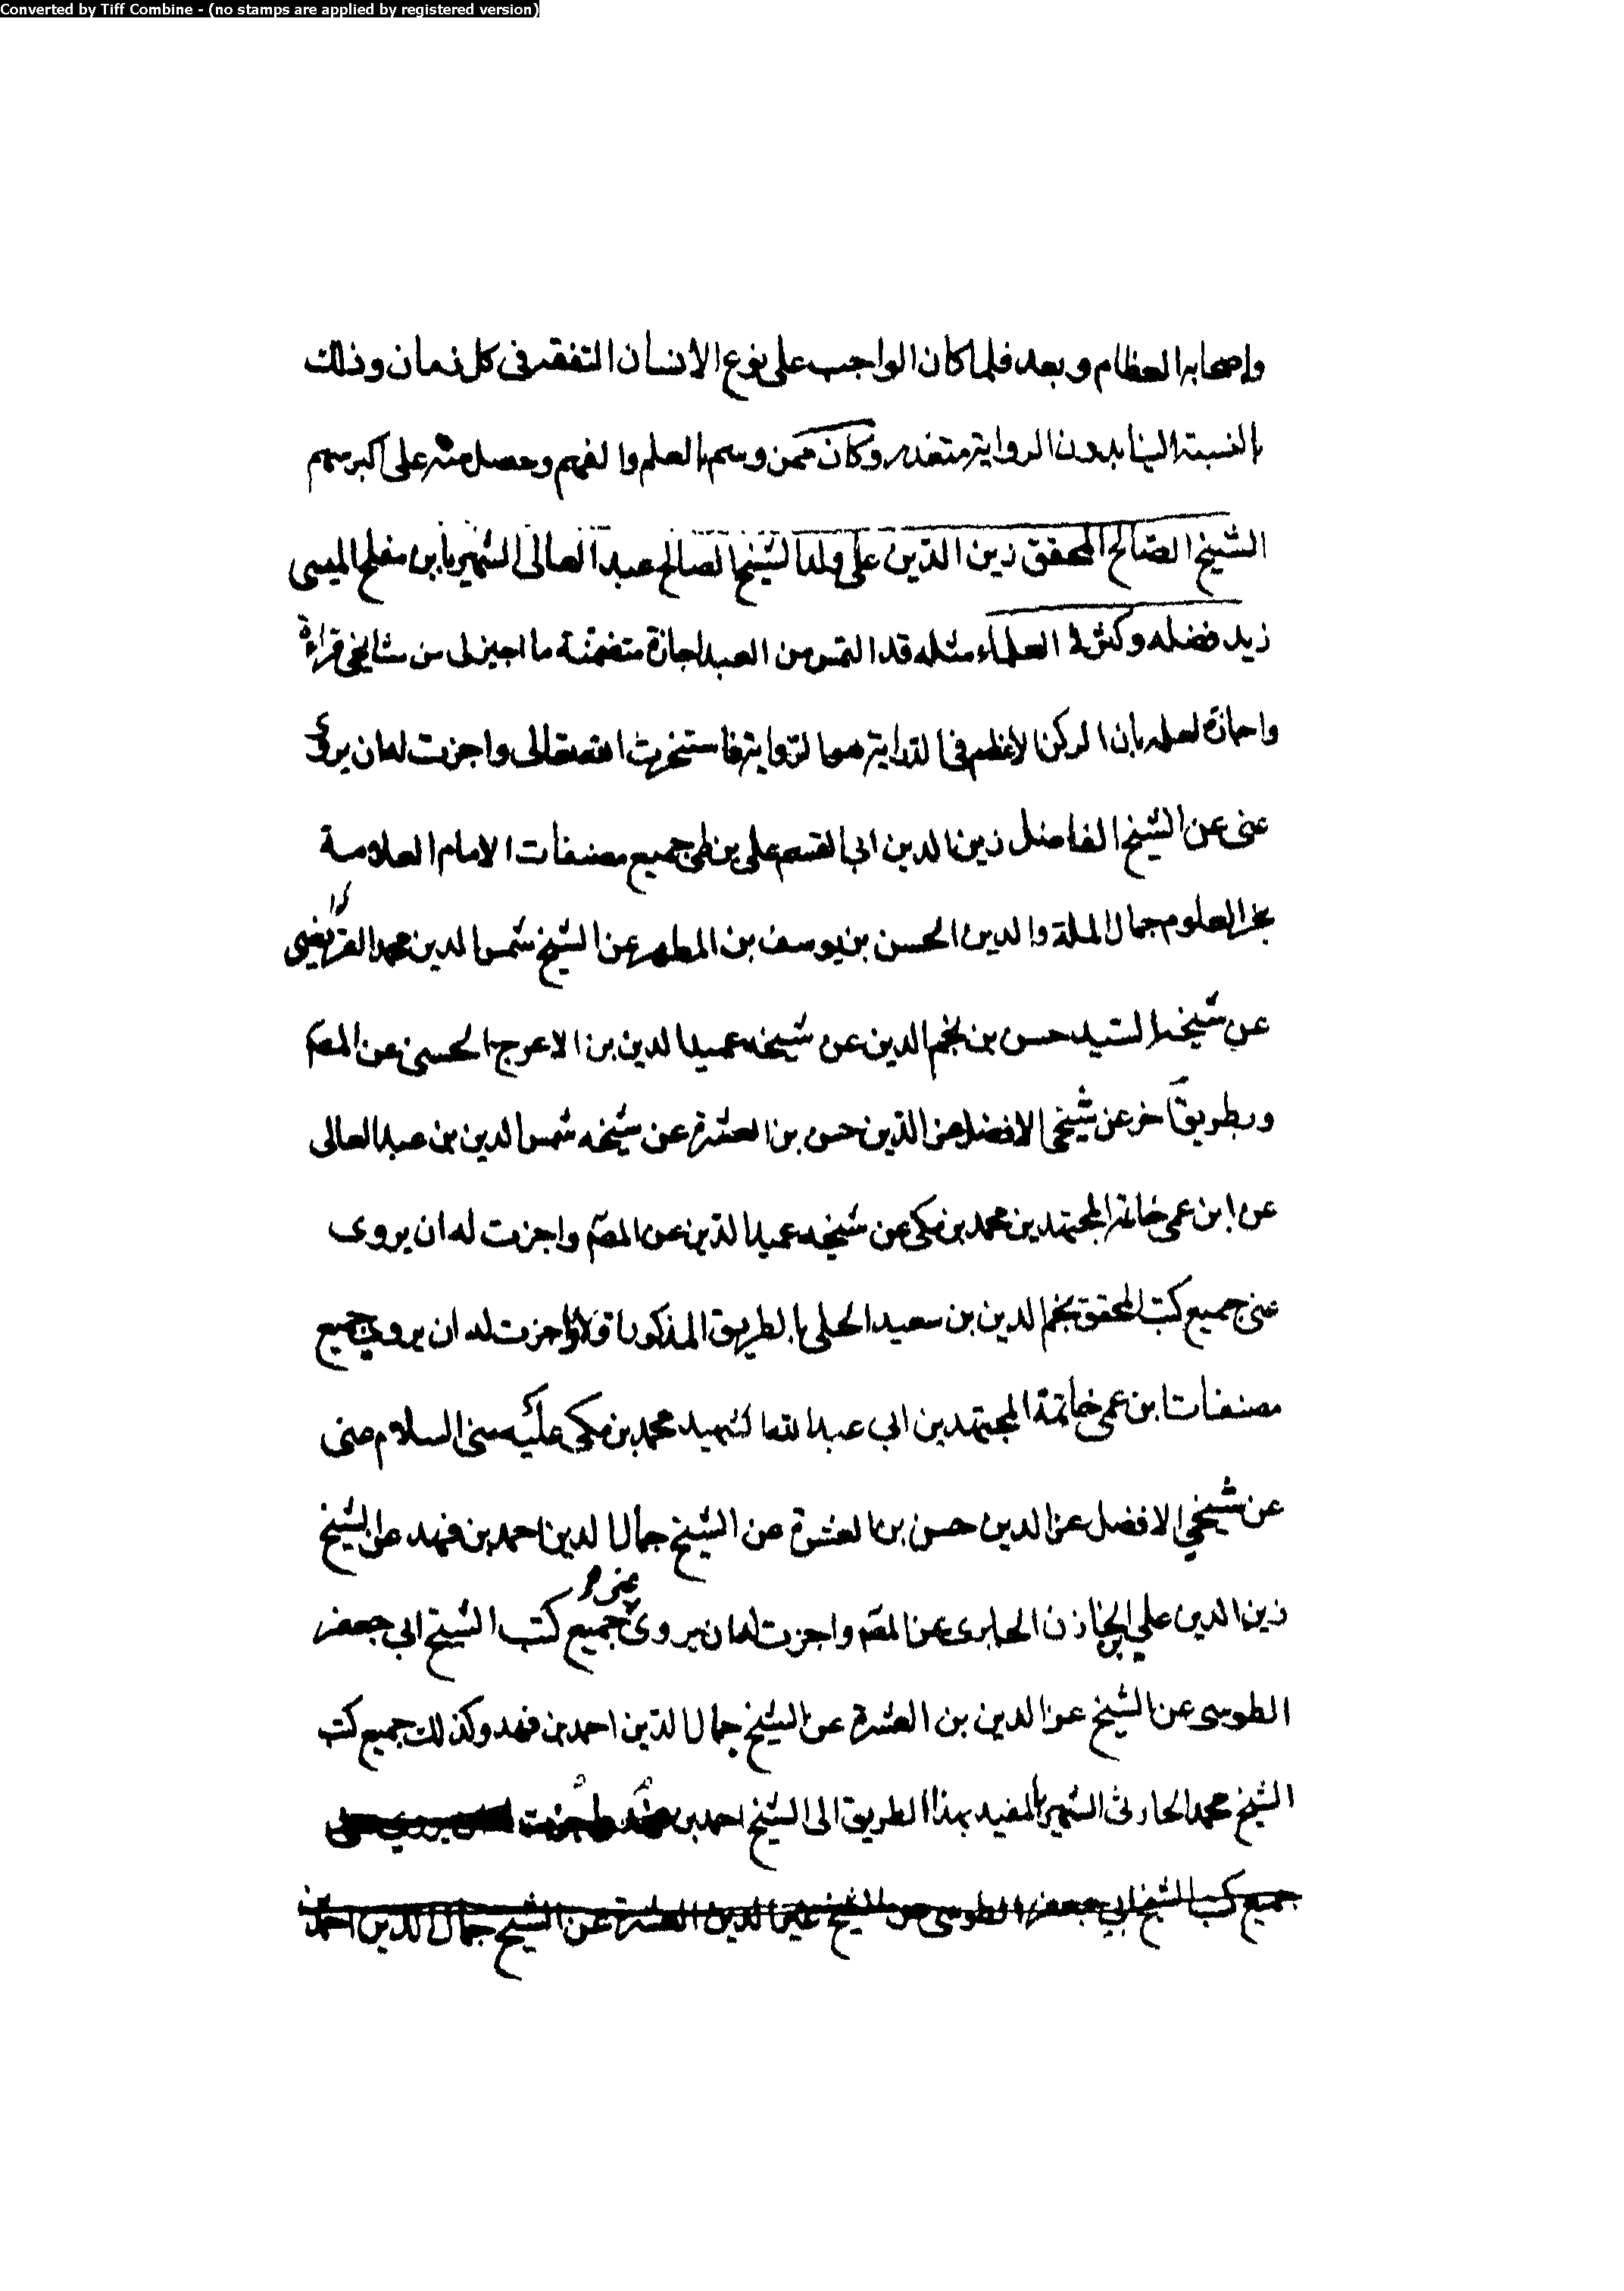 Converted by Tiff Combine - (no stamps are applied by registered version)
واصحابه العظام وبعد فلما كان الواجب على نوع الانسان التفقه فى كل زمان وذلك
بالنسبة الينا بدون الرواية متعذر وكان ممن وسم بالعلم والفهم وحصل منه على اكبر سهم
الشيخ الصالح المحقق زين الدين على ولد الشيخ الصالح عبد العالى الشهير بابن مفلح الميسى
زيد فضله وكثر فى العلماء مثله قد التمس من العبد اجازة متضمنة ما اجيز لى من مشايخى قراءة
واجازة لعلمه بان الركن الاعظم فى الدراية هو الرواية فاستخرت الله تعالى واجزت له ان يروى
عنى عن الشيخ الفاضل زين الدين ابى القسم على بن طى جميع مصنفات الامام العلامة
بحر العلوم جمال الملة والدين الحسن بن يوسف بن المطهر عن الشيخ شمس الدين محمد العريضى
عن شيخه السيد حسن بن نجم الدين عن شيخه عميد الدين بن الاعرج الحسينى عن المصّ
وبطريق آخر عن شيخى الافضل عز الدين حسن بن العشرة عن شيخه شمس الدين بن عبد العالى
عن ابن عمى خاتمة المجتهدين محمد بن مكى عن شيخه عميد الدين عن المصّ واجزت له ان يروى
عنى جميع كتب المحقق نجم الدين بن سعيد الحلى بالطريق المذكور اولا واجزت له ان يروى جميع
مصنفات ابن عمى خاتمة المجتهدين ابى عبد الله الشهيد محمد بن مكى عليه منى السلام عنى
عن شيخي الافضل عز الدين حسن بن العشرة عن الشيخ جمال الدين احمد بن فهد عن الشيخ
زين الدين علي بن الخازن الحايرى عن المصّ واجزت له ان يروى عنى جميع كتب الشيخ ابي جعفر
الطوسى عن الشيخ عز الدين بن العشرة عن الشيخ جمال الدين احمد بن فهد وكذلك جميع كتب
الشيخ محمد الحارثى الشهير بالمفيد بهذا الطريق الى الشيخ احمد بن فهد واجزت يروي
جميع كتب الشيخ ابي جعفر الطوسى عن الشيخ عز الدين العشرة عن الشيخ جمال الدين احمد بن